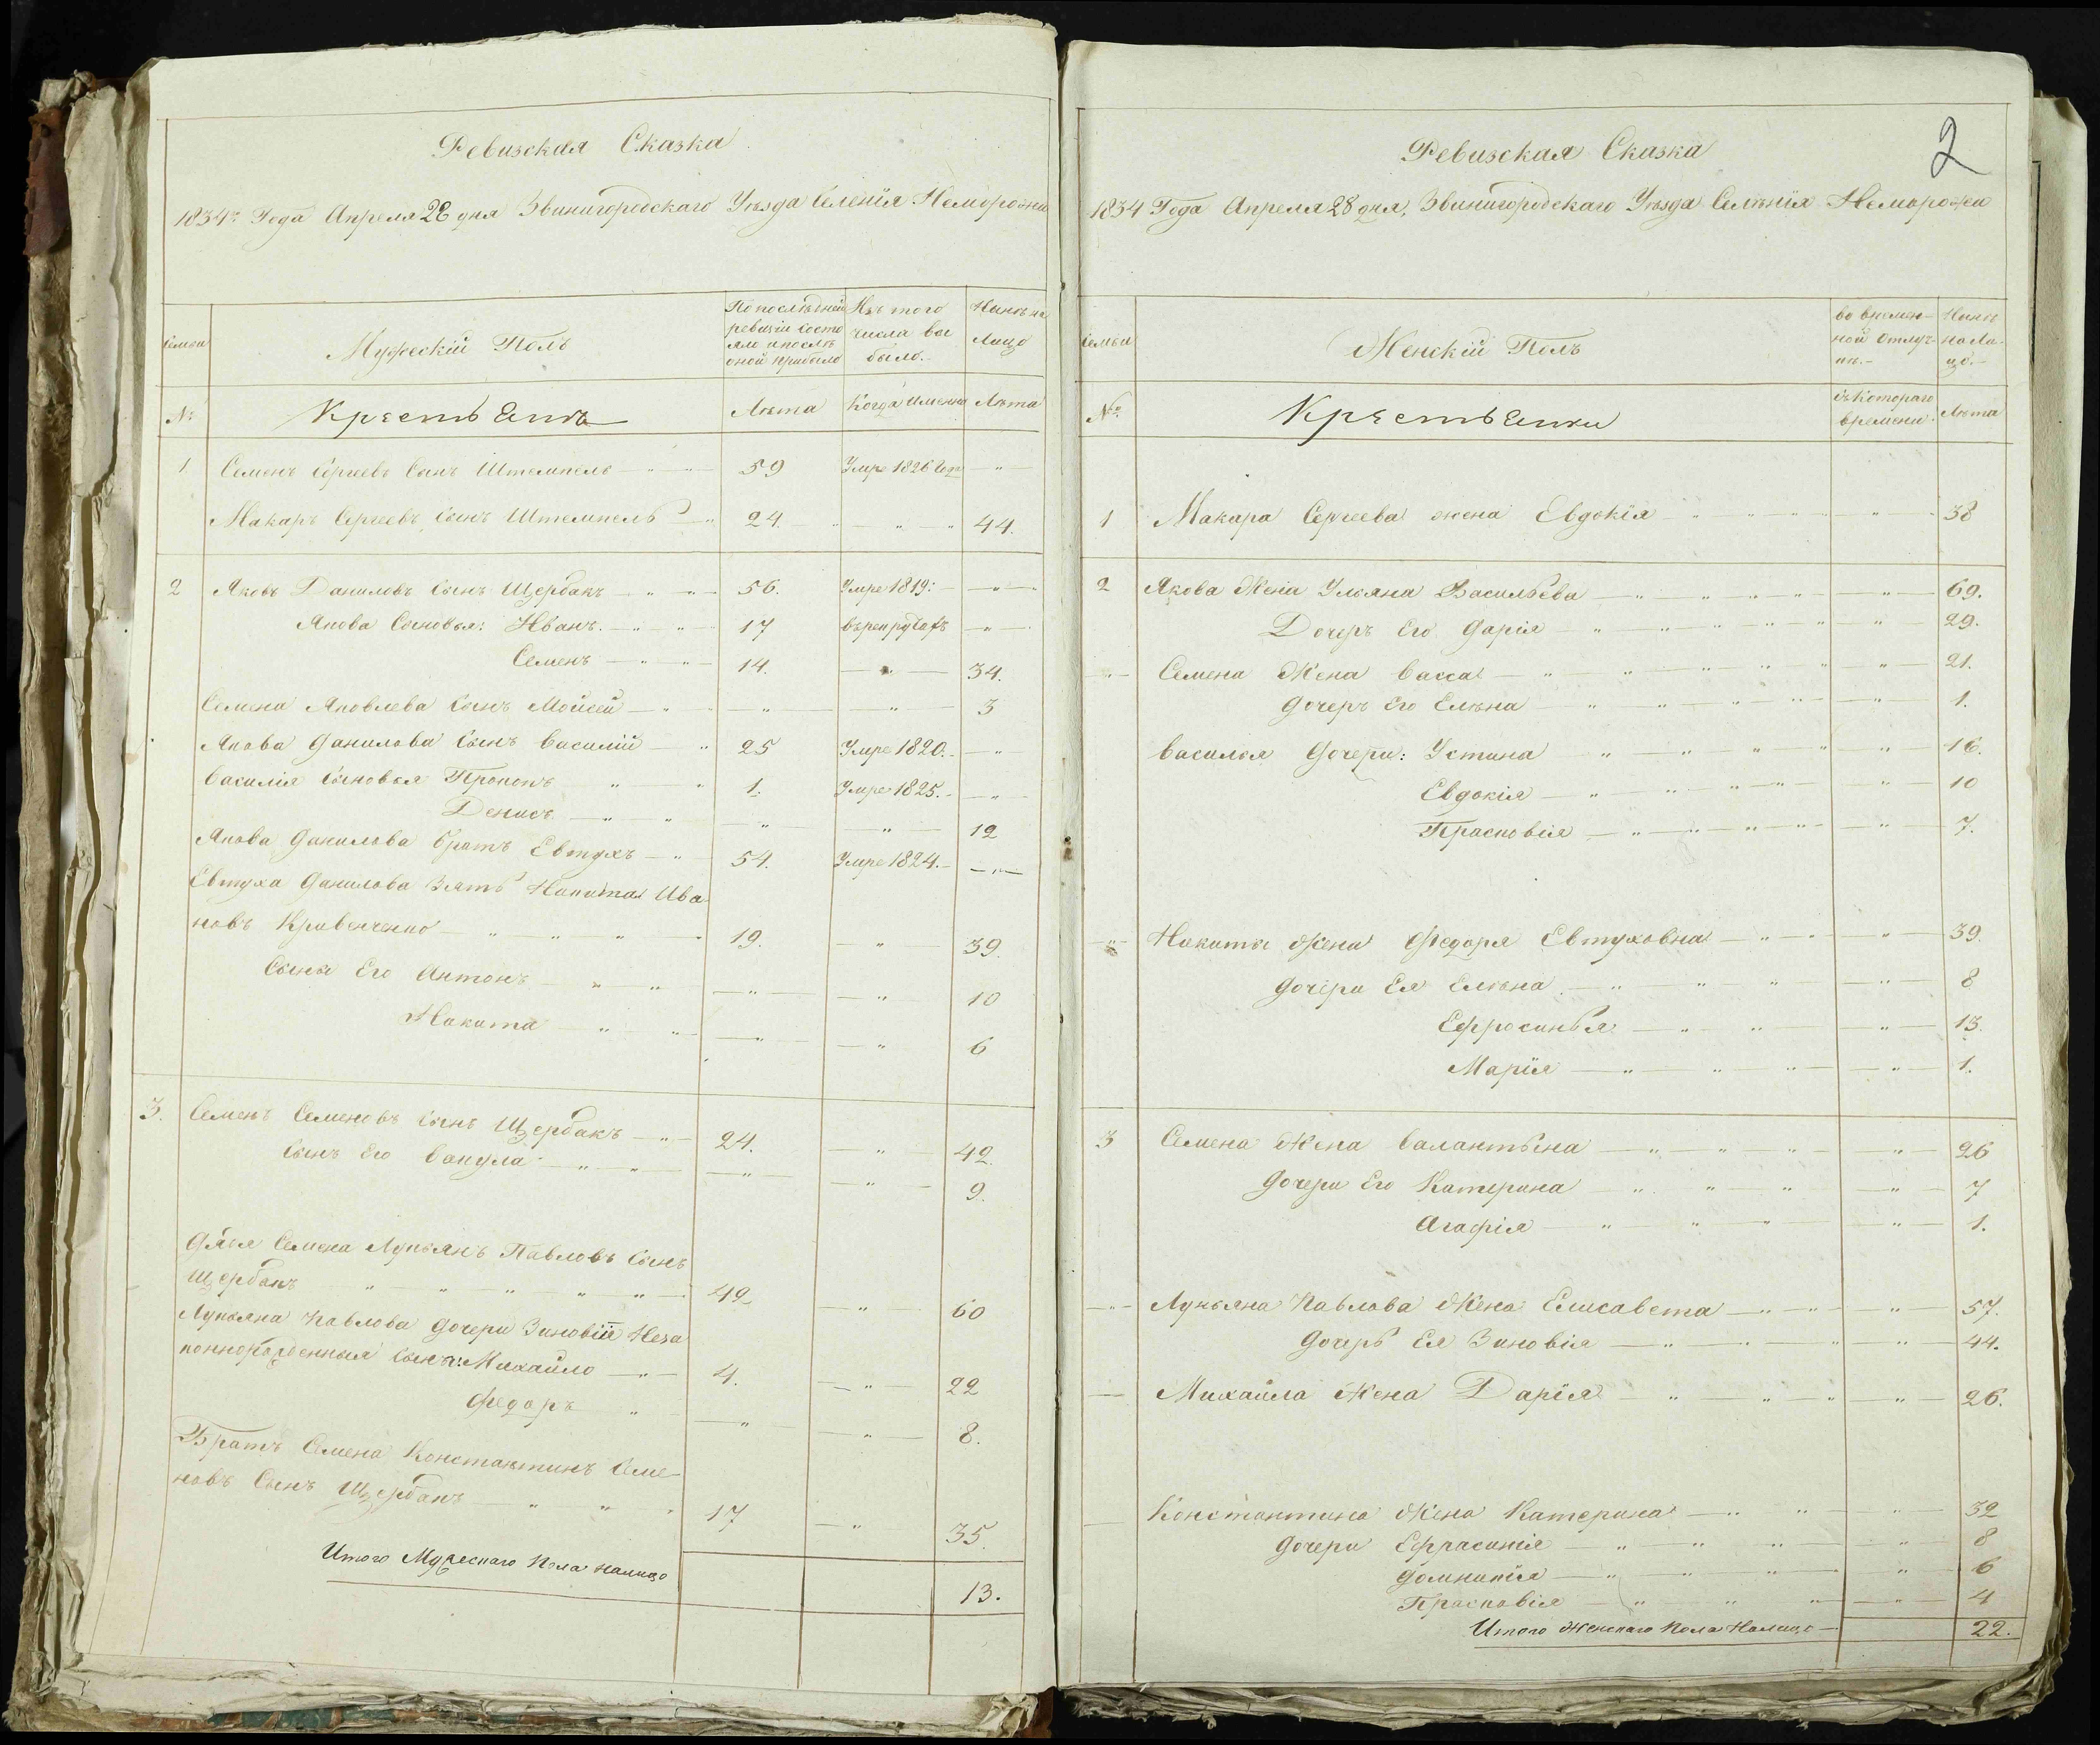 Ревизская Сказка
1834го Года Апреля 28 дня Звинигородскаго Уѣзда Селенія Неморожи
Семьи
Мужескій Полъ
По послѣдней ревизіи состояли и послѣ оной прибыло
Изъ того числа выбыло.
Нынѣ на Лицо
№
Крестьянъ
Лѣта
Когда именно
Лѣта
1 Семенъ Сергеевъ Сынъ Штемпель — " — 59 Умре 1826 года "
Макаръ Сергеевъ Сынъ Штемпель — " 24. " — " " 44.
2 Яковъ Даниловъ Сынъ Щербакъ — " — 56. Умре 1819: — " —
Якова Сыновья: Иванъ. — " — 17 въ рекрутахъ — " —
Семенъ — " — " — 14. — " — 34.
Семена Яковлева Сынъ Мойсей — " — " — — " — 3
Якова Данилова Сынъ Василій — " 25 Умре 1820. — "
Василія Сыновья Прокопъ " — " 1. Умре 1825. — " —
Денисъ — " — " " — " — 12
Якова Данилова братъ Евтухъ — " 54. Умре 1824. — " —
Евтуха Данилова Зять Никита Ива-
новъ Кривенченко — " " " " 19. — " — 39.
Сыны Его Антонъ — " — " — " — — " 10
Никита — " — " — — " — — " 6
3. Семенъ Семеновъ Сынъ Щербакъ — " — 24. — " — 42.
Сынъ Его Вакула — " — " — — " — — " — 9.
Дядя Семена Лукьянъ Павловъ Сынъ
Щербакъ " — " — " — " — " — 42 — " 60
Лукьяна Павлова дочери Зиновіи Неза
коннорожденныя Сыны: Михайло — " — 4. — " — 22
Федоръ " — " — — " — 8.
Братъ Семена Константинъ Семе-
новъ Сынъ Щербакъ — " — " — " 17 — " 35.
Итого Мужескаго Пола налицо 13.
2
Ревизская Сказка
1834 Года Апреля 28 дня, Звинигородскаго Уѣзда Селѣнія Неморожи
Семьи
Женскій Полъ
во времен-
ной отлуч-
ки. —
Нынѣ
на Ли-
цо. —
№
Крестьянки
съ котораго
времени.
Лѣта
1 Макара Сергеева жена Евдокія — " " " " — " — 38
2 Якова Жена Ульяна Васильева — " — " " " — — " — 69.
Дочеръ Его Дарія — " — " — " " " — " — 29.
— " — Семена Жена Васса — " — " — " " " — " — 21.
дочеръ Его Елѣна — " — " — " — " — " — 1.
Василья Дочери: Устина — " — " " " " — 16.
Евдокія — " — " " — " — — " — 10
Прасковія — " — " " " — — " — 7.
— " — Никиты Жена Федора Евтуховна — " — " — " — 39.
дочери Ея Елѣна — " — " " — — " — 8
Ефросинья — " — " — " — 13.
Марія — " — " " — — " — 1.
3 Семена Жена Валантына — " — " " — — " — 26
дочери Его Катерина — " " " — " — 7
Агафія — " — " " — — " — 1.
— " — Лукьяна Павлова Жена Елисавета — " — " — " — 57.
дочерь Ея Зиновія — " — " — " — " — 44.
— Михайла Жена Дарія — " " — " — " — 26.
— Константина Жена Катерина — " " — " — 32
дочери Ефрасинія — " — " — " — " — 8
Домникія — " — " " — " — 6
Прасковія — " — " " — " — 4
Итого Женскаго Пола Налицо — 22.